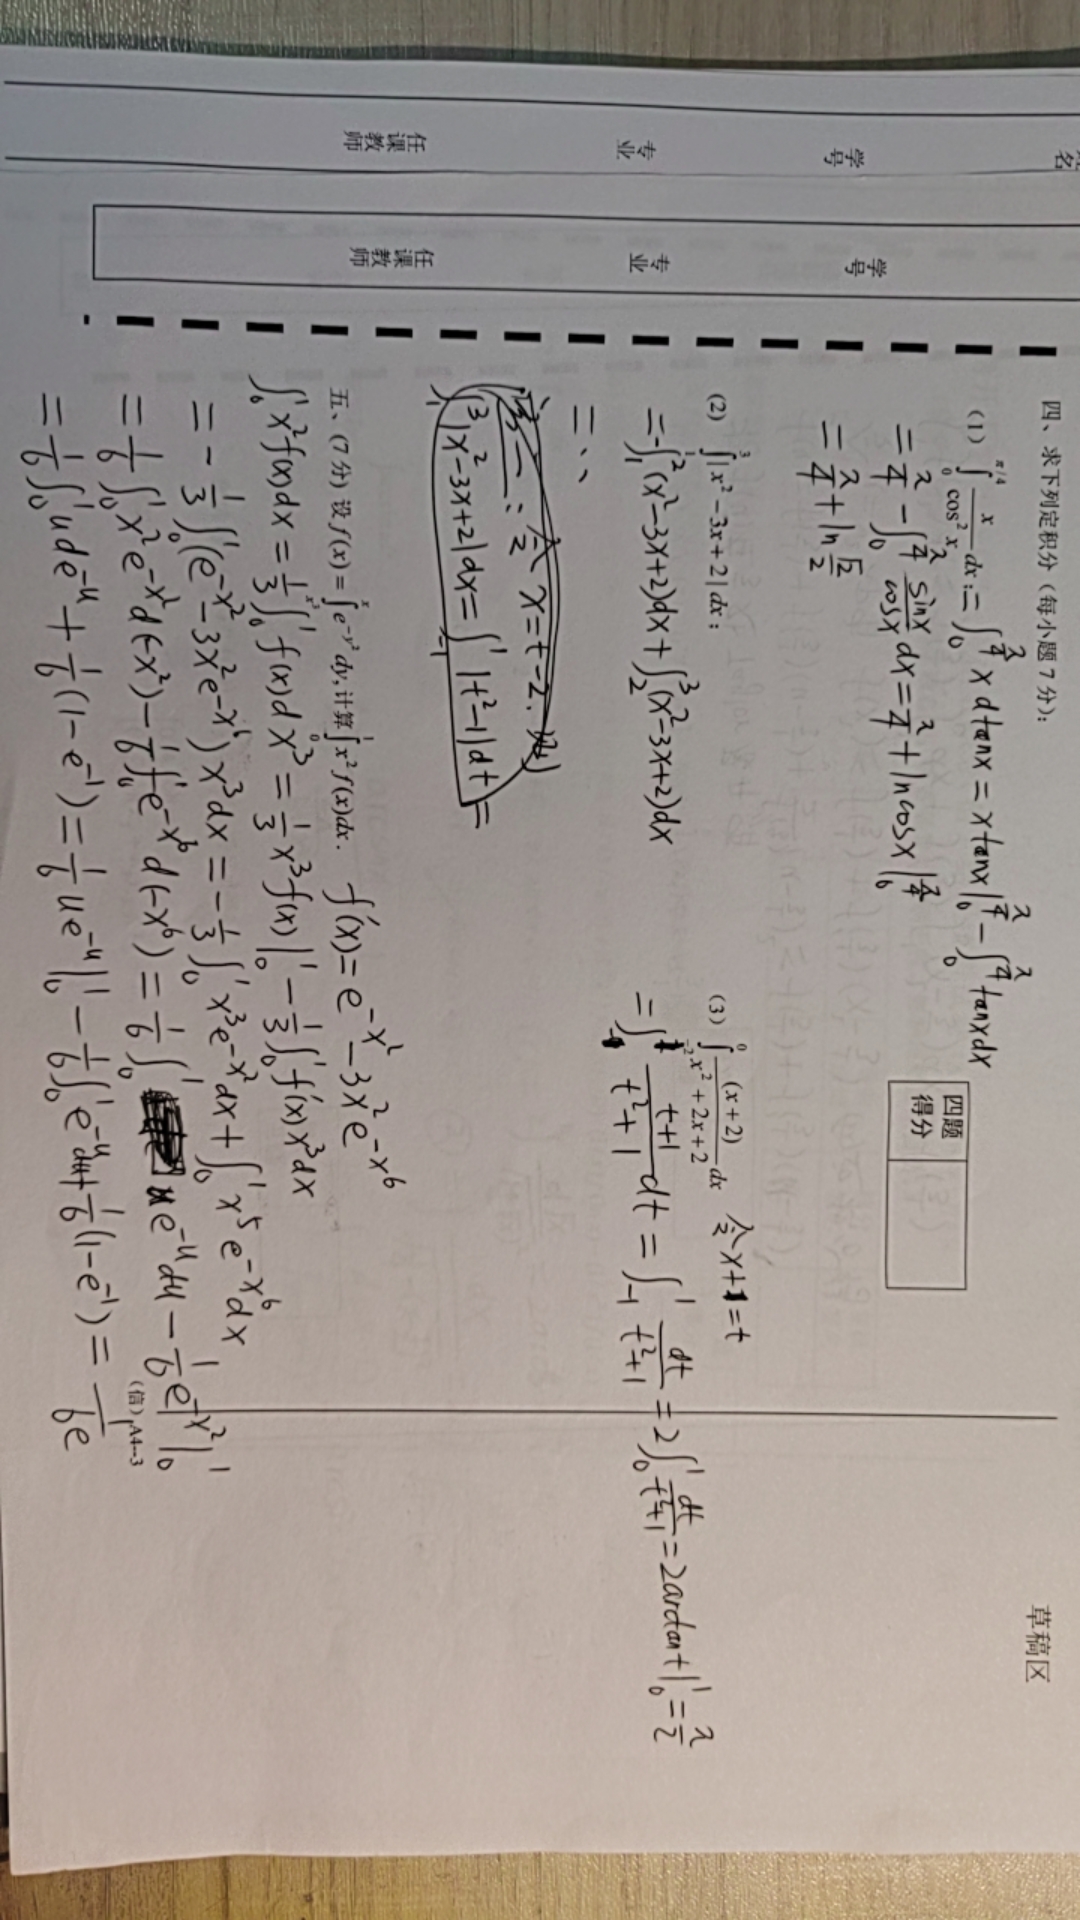 任课教师
专业
学号
名
任课教师
专业
学号
草稿区
四、求下列定积分（每小题 7 分）：
四题得分
(1) ∫₀^{π/4} x/cos²x dx; = ∫₀^{π/4} x dtanx = xtanx |₀^{π/4} - ∫₀^{π/4} tanxdx
= π/4 - ∫₀^{π/4} sinx/cosx dx = π/4 + lncosx |₀^{π/4}
= π/4 + ln √2/2
(2) ∫₁³ |x² - 3x + 2| dx;
= -∫₁² (x²-3x+2)dx + ∫₂³ (x²-3x+2)dx
= 、、
令 x = t-2.
∫₁³ |x²-3x+2| dx = ∫₋₁¹ |t²-1| dt =
(3) ∫₋₂⁰ (x+2)/(x²+2x+2) dx 令 x+1=t
= ∫ (t+1)/(t²+1) dt = ∫₋₁¹ dt/(t²+1) = 2∫₀¹ dt/(t²+1) = 2arctan t |₀¹ = π/2
五、(7 分) 设 f(x) = ∫_{x³}^{x} e^{-y²} dy, 计算 ∫₀¹ x² f(x)dx. f'(x) = e^{-x²} - 3x² e^{-x⁶}
∫₀¹ x²f(x)dx = 1/3 ∫₀¹ f(x)dx³ = 1/3 x³f(x) |₀¹ - 1/3 ∫₀¹ f'(x)x³dx
= - 1/3 ∫₀¹ (e^{-x²} - 3x²e^{-x⁶}) x³dx = - 1/3 ∫₀¹ x³e^{-x²}dx + ∫₀¹ x⁵e^{-x⁶}dx
= 1/6 ∫₀¹ x²e^{-x²}d(-x²) - 1/6 ∫₀¹ e^{-x⁶}d(-x⁶) = 1/6 ∫₀¹ ue^{-u}du - 1/6 e^{-x²} |₀¹
= 1/6 ∫₀¹ ude^{-u} + 1/6 (1-e^{-1}) = 1/6 ue^{-u} |₀¹ - 1/6 ∫₀¹ e^{-u}du + 1/6 (1-e^{-1}) = 1/6e
(信) A4--3